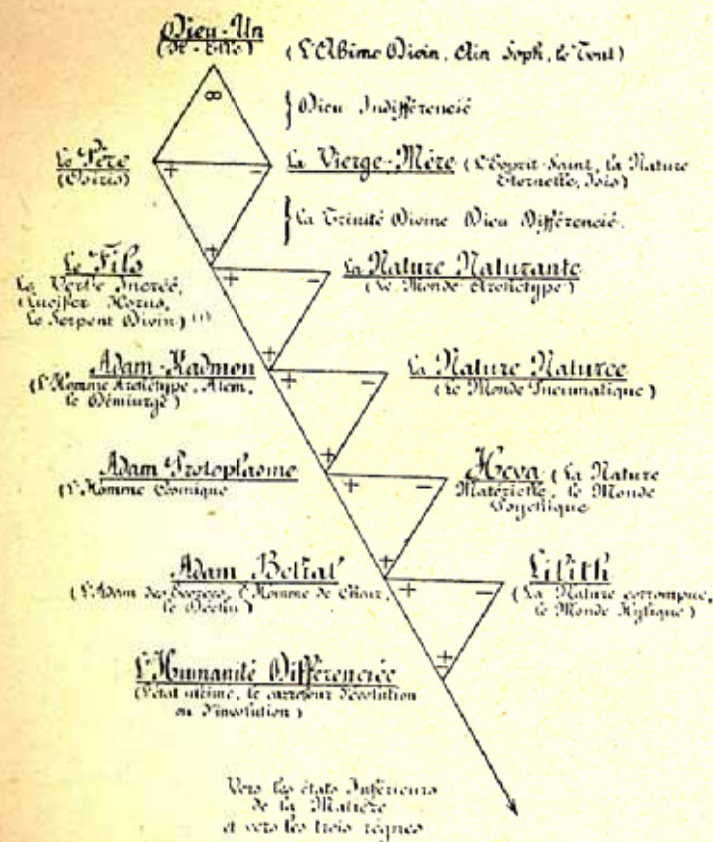 Dieu-Un
(L'Abîme Divin, Ain Soph, le Tout)
∞
} Dieu Indifférencié
Le Père
(Osiris)
+ -
La Vierge-Mère (L'Esprit-Saint, la Nature
Eternelle, Isis)
} La Trinité Divine Dieu Différencié.
+
Le Fils
Le Verbe Incréé,
(Lucifer Horus,
le Serpent Divin) (1)
+ -
La Nature Naturante
(Le Monde Archétype)
+
Adam-Kadmon
(L'Homme Archétype, Atem,
le Démiurge)
+ -
La Nature Naturée
(Le Monde Pneumatique)
+
Adam Protoplasme
(L'Homme Cosmique
+ -
Heva (La Nature
Matérielle, le Monde
Psychique
+
Adam Belial
(L'Adam des Ecorces, l'Homme de Chair,
le Déclin)
+ -
Lilith
(La Nature corrompue,
le Monde Hylique)
+
L'Humanité Différenciée
(L'état ultime, le carrefour d'évolution
ou d'involution)
Vers les états Inférieurs
de la Matière
et vers les trois règnes